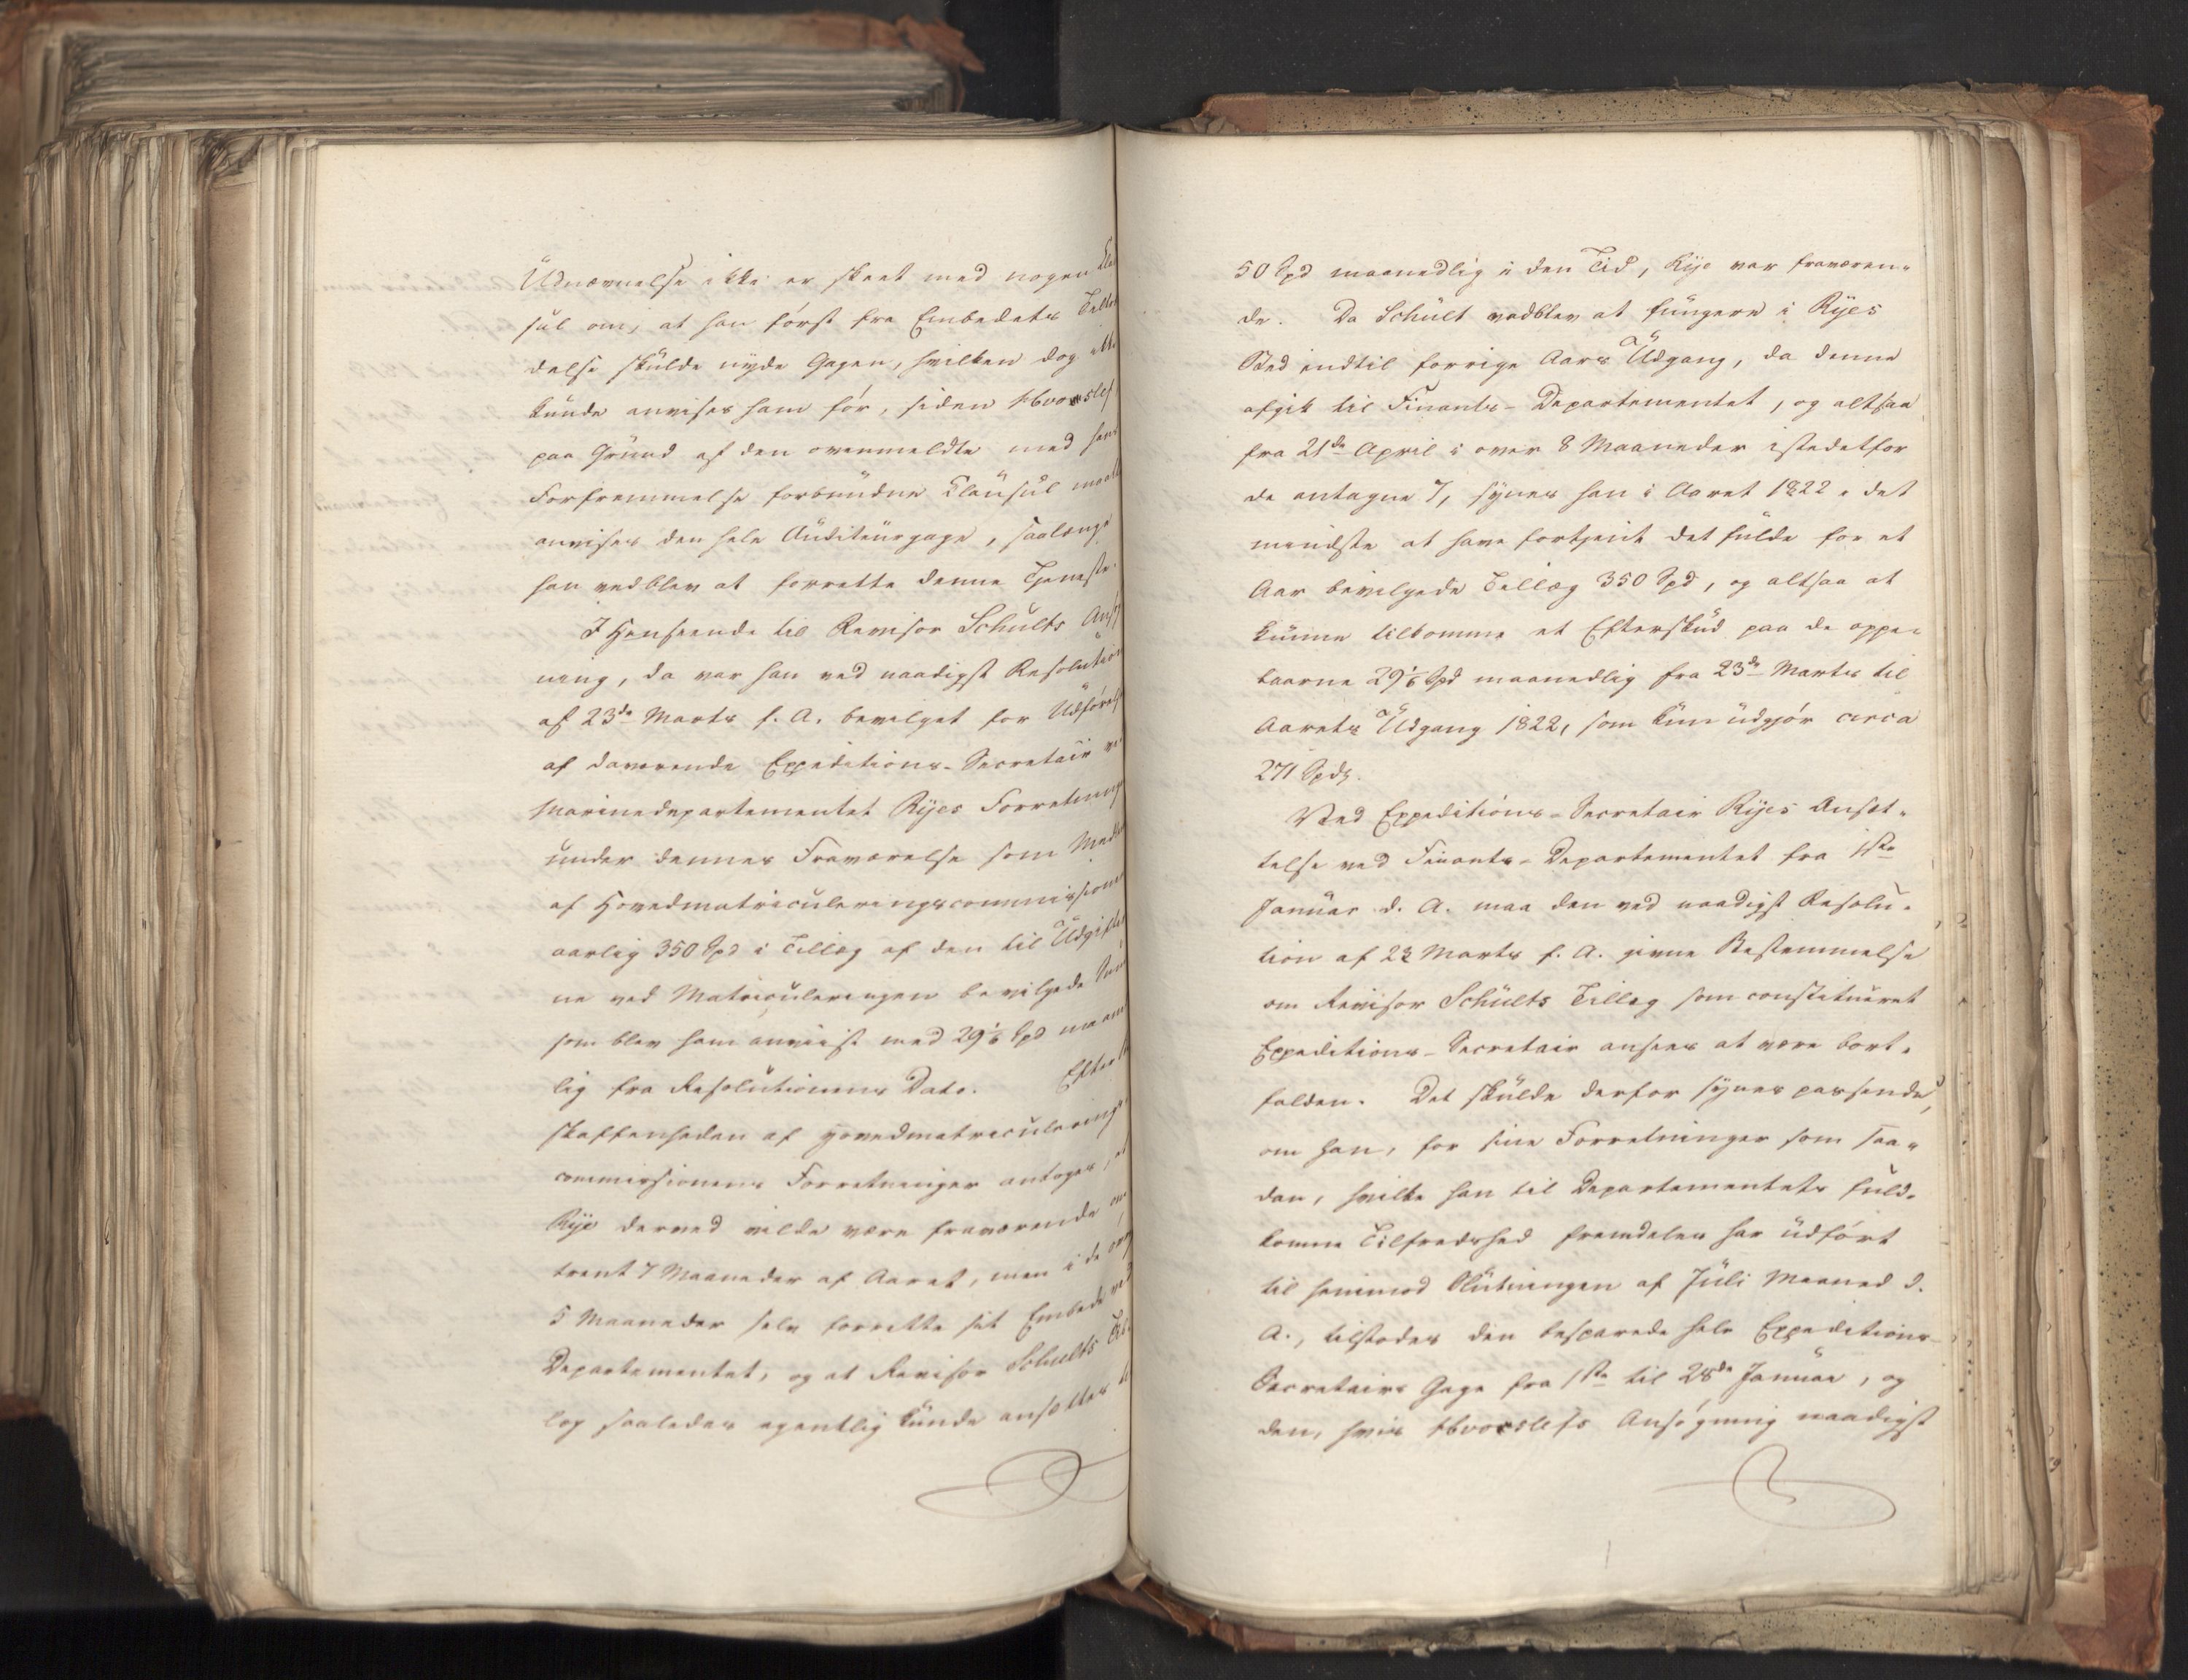 Udnævnelse ikke er skeet med nogen Clau
sul om, at han først fra Embedets Tiltræ
delse skulde nyde Gagen, hvilken dog ikke
kunde anvises ham før, siden Hvorslef
paa Grund af den ovenmeldte med hans
Forfremmelse forbundne Clausul maatte
anvises den hele Auditeurgage, saalænge
han vedblev at forrette denne Tjeneste.
I Henseende til Revisor Schults Ansøg
ning, da var han ved naadigst Resolution
af 23de Marts f. A. bevilget for Udførelse
af daværende Expeditions-Secretair ved
Marinedepartementet Ryes Forretninger
under dennes Fraværelse som Medlem
af Hovedmatriculeringscommissionen
aarlig 350 Spd i Tillæg af den til Udgifter
ne ved Matriculeringen bevilgede Sum
som blev ham anviist med 29 1/6 Spd maaned
lig fra Resolutionens Dato. Efter
skaffenheden af Hovedmatriculerings
commissionens Forretninger antoges, at
Rye derved vilde være fraværende om
trent 7 Maaneder af Aaret, men i de øvrige
5 Maaneder selv forrette sit Embede ved
Departementet, og at Revisor Schults Til
læg saaledes egentlig kunde ansættes til
50 Spd maanedlig i den Tid, Rye var fraværen-
de. Da Schult vedblev at fungere i Ryes
Sted indtil forrige Aars Udgang, da denne
afgik til Finants-Departementet, og altsaa
fra 21de April i over 8 Maaneder istedetfor
de antagne 7, synes han i Aaret 1822 i det
mindste at have fortjent det fulde for et
Aar bevilgede Tillæg 350 Spd, og altsaa at
kunne tilkomme et Efterskud paa de oppe-
baarne 29 1/6 Spd maanedlig fra 23de Marts til
Aarets Udgang 1822, som kun udgjør circa
271 Spd.
Ved Expeditions-Secretair Ryes Ansæt-
telse ved Finants-Departementet fra 1ste
Januar d. A. maa den ved naadigst Resolu-
tion af 23 Marts f. A. givne Bestemmelse
om Revisor Schults Tillæg som constitueret
Expeditions-Secretair ansees at være bort-
falden. Det skulde derfor synes passende,
om han, for sine Forretninger som saa-
dan, hvilke han til Departementets fuld-
komne Tilfredshed fremdeles har udført
til henimod Slutningen af Juli Maaned d.
A., tilstodes den besparede hele Expeditions-
Secretairs Gage fra 1ste til 28de Januar, og
den, hvis Hvorslefs Ansøgning naadigst